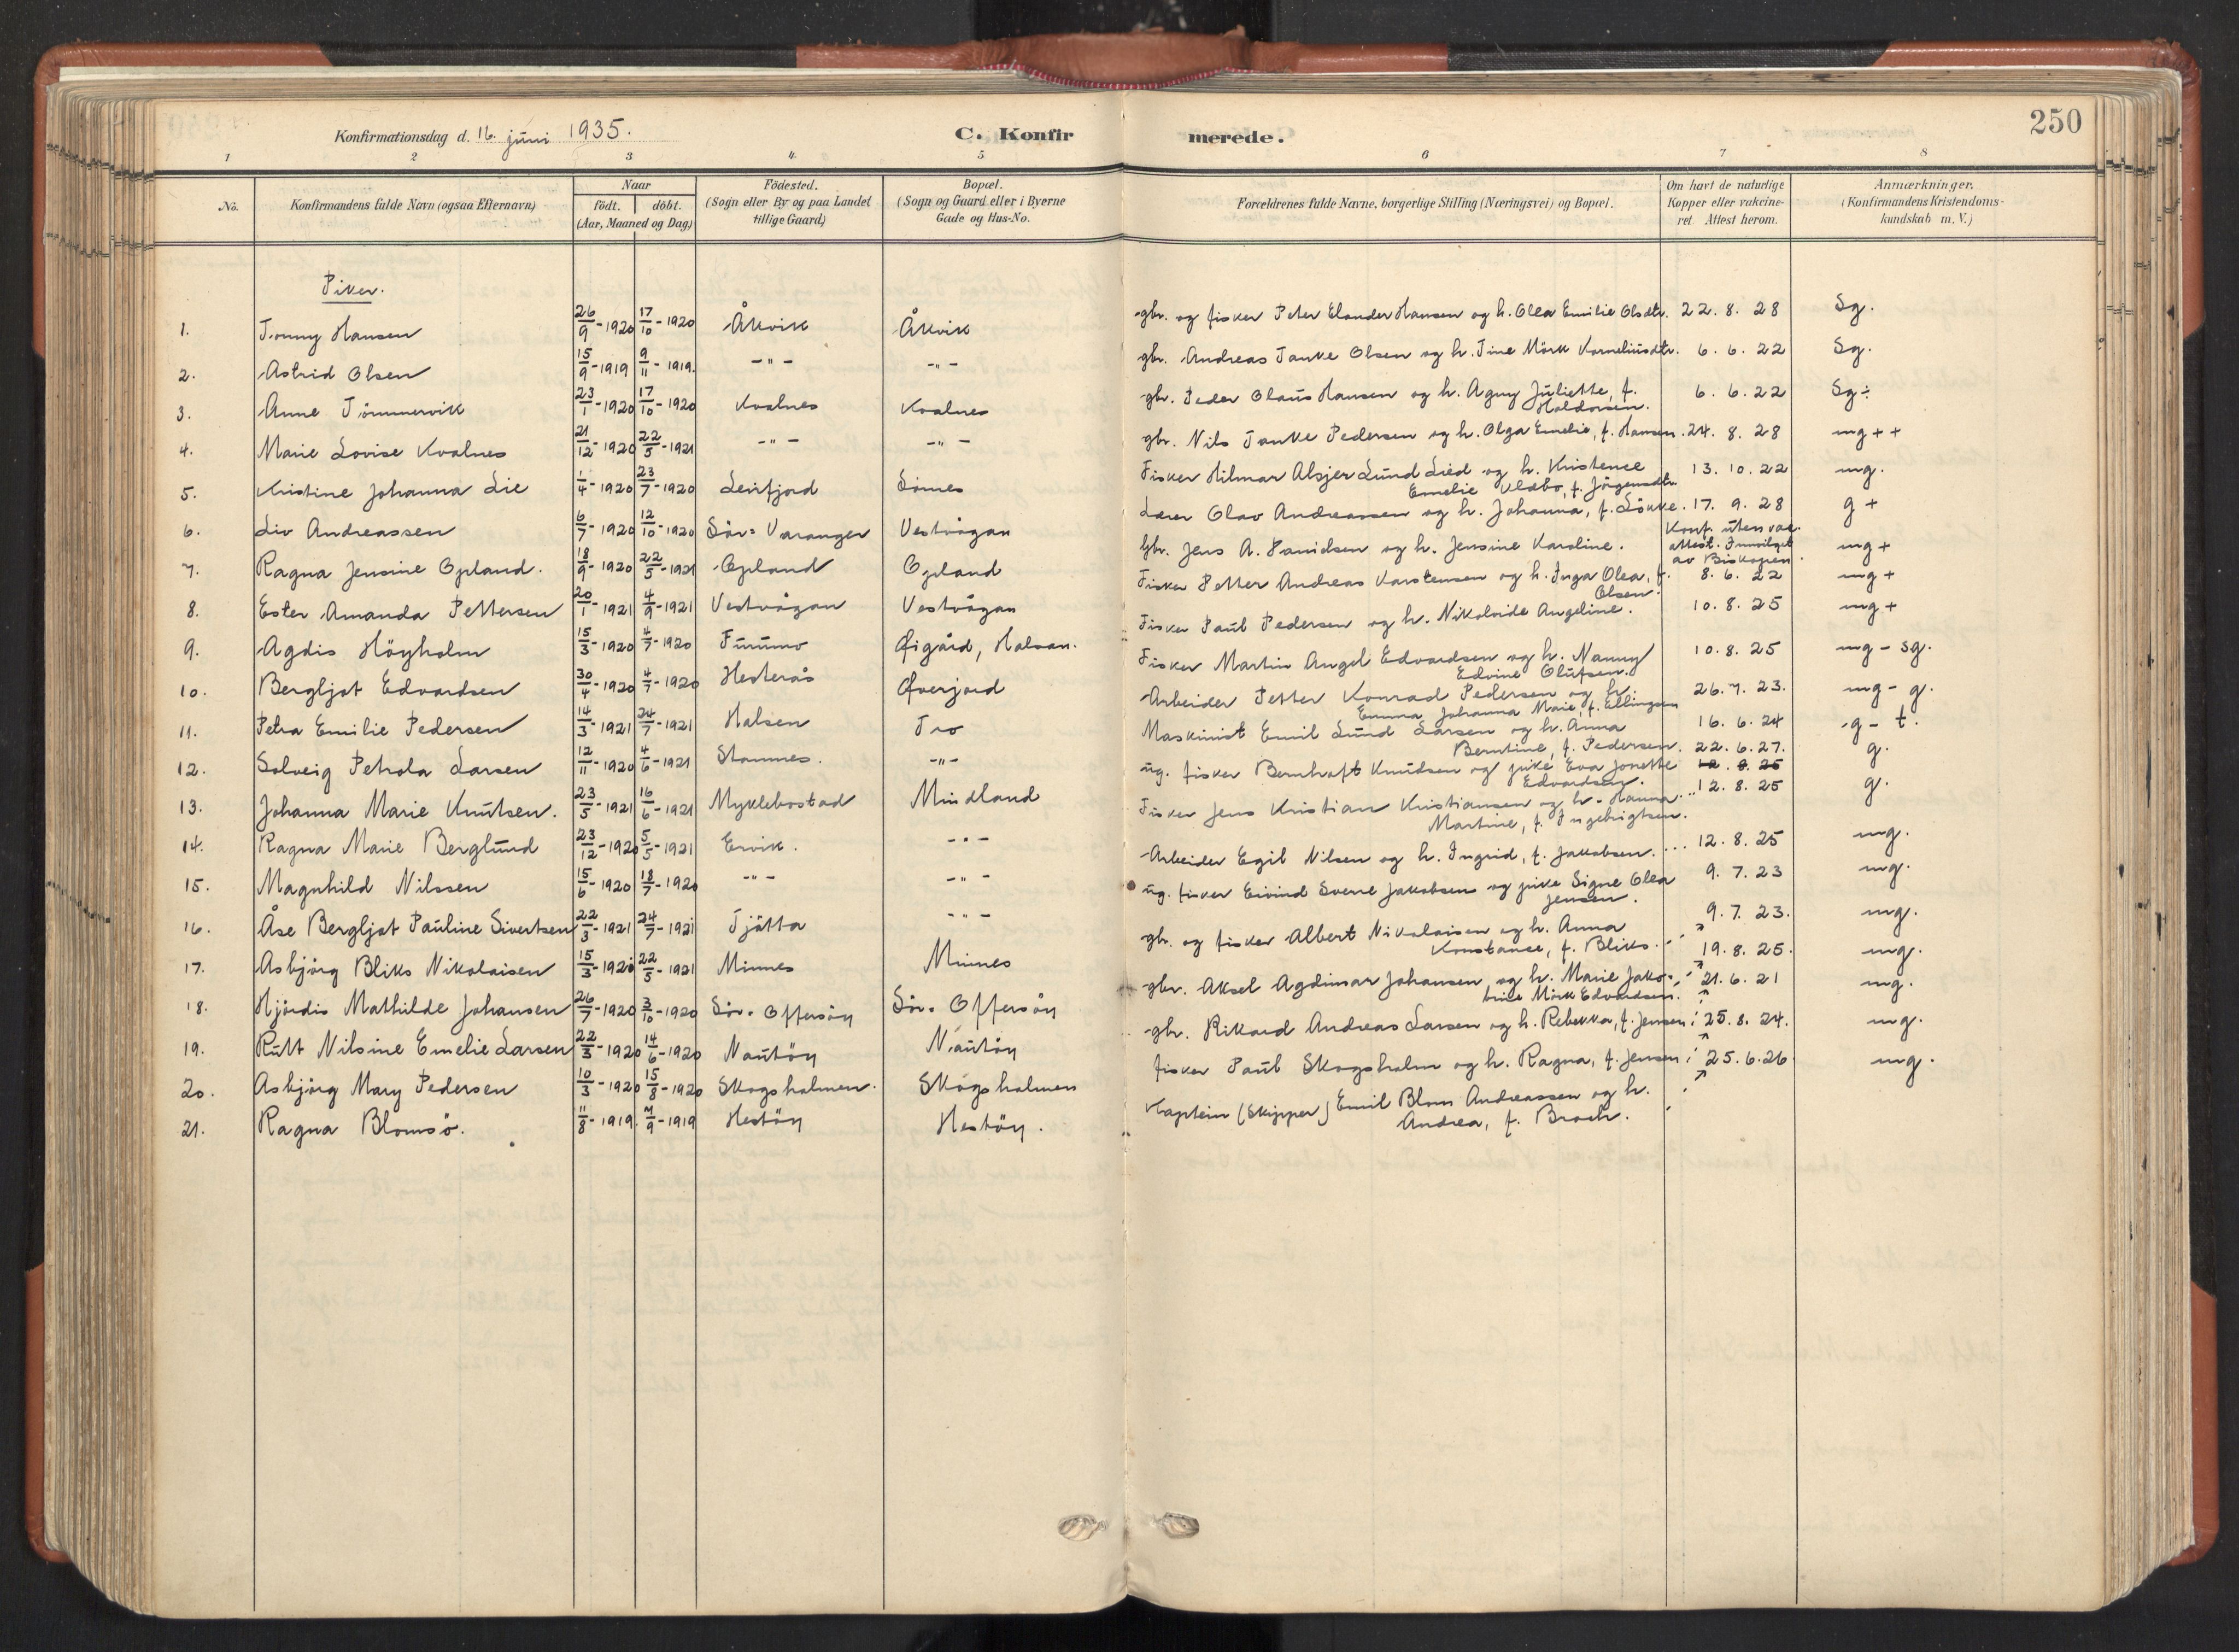 250
Konfirmationsdag d. 16. juni 1935. C. Konfirmerede.
1 2 3 4. 5 6 7 8
No. Konfirmandens fulde Navn (ogsaa Efternavn) Naar födt. döbt. (Aar, Maaned og Dag) Födested. (Sogn eller By og paa Landet tillige Gaard) Bopæl. (Sogn og Gaard eller i Byerne Gade og Hus-No. Forældrenes fulde Navne, borgerlige Stilling (Næringsvei) og Bopæl. Om havt de naturlige Kopper eller vakcineret Attest herom. Anmærkninger. (Konfirmandens Kristendomskundskab m. V.)
Piker.
1. Jonny Hansen 26/9-1920 17/10-1920 Åkvik Åkvik gbr. og fisker Peter Elander Hansen og h. Olea Emilie Olsdtr. 22.8.28 Sg.
2. Astrid Olsen 15/9-1919 9/11-1919. -"- -"- gbr. Andreas Tanke Olsen og h. Tine Mörk Korneliusdtr. 6.6.22 Sg.
3. Anne Tömmervik 23/1-1920 17/10-1920 Kvalnes Kvalnes gbr. Peder Olaus Hansen og h. Agny Juliette, f. Haldorsen. 6.6.22 Sg÷
4. Marie Lovise Kvalnes 21/12-1920 22/5-1921 -"- -"- gbr. Nils Tanke Pedersen og h. Olga Emelie, f. Hansen. 24.8.28 mg++
5. Kristine Johanna Lie 1/4-1920 23/7-1920 Leirfjord Sörnes Fisker Hilmar Alsjer Lund Lied og h. Kristence Emelie Klæbo, f. Jörgensdtr. 13.10.22 mg.
6. Liv Andreassen 6/7-1920 12/10-1920 Sör-Varanger Vestvågan Lærer Olav Andreassen og h. Johanna, f. Lökke. 17.9.28 g+
7. Ragna Jensine Opland. 18/9-1920 22/5-1921 Opland Opland Gbr. Jens A. Davidsen og h. Jensine Karoline. Konf. uten vac. attest. Innvilget av Biskopen. mg+
8. Ester Amanda Pettersen 20/1-1921 4/9-1921 Vestvågan Vestvågan Fisker Petter Andreas Karstensen og h. Inga Olea, f. Olsen. 8.6.22 mg+
9. Agdis Höyholm 15/3-1920 4/7-1920 Furumo Øigård, Halsan. Fisker Paul Pedersen og h. Nikoloide Angeline. 10.8.25 mg+
10. Bergljot Edvardsen 30/4-1920 4/7-1920 Hesterås Øverjord Fisker Martin Angel Edvardsen og h. Nanny Edvine Olufsen. 10.8.25 mg-sg.
11. Petra Emilie Pedersen 14/3-1921 24/7-1921 Halsen Tro Arbeider Petter Konrad Pedersen og h. Emma Johanna Marie, f. Ellingsen 26.7.23. mg-g.
12. Solveig Petrola Larsen 12/11-1920 4/6-1921 Stamnes. -"- Maskinist Emil Lund Larsen og h. Anna Berntine, f. Pedersen. 16.6.24 g-t.
13. Johanna Marie Knutsen. 23/5-1921 16/6-1921 Myklebostad Mindland ug. fisker Bernhoft Knudsen og pike Eva Jonette Edvardsen. 22.6.27. 12.8.25 g.
14. Ragna Marie Berglund 23/12-1920 5/5-1921 Ervik. -"- Fisker Jens Kristian Kristiansen og h. Hanna Martine, f. Ingebrigtsen. 12.8.25 g.
15. Magnhild Nilssen 15/6-1920 18/7-1920 -"- -"- Arbeider Egil Nilsen og h. Ingrid, f. Jakobsen. ... 12.8.25 mg.
16. Åse Bergljot Pauline Sivertsen 22/3-1921 24/7-1921 Tjötta -"- ug. fisker Eivind Sverre Jakobsen og pike Signe Olea Jensen. 9.7.23 mg.
17. Asbjörg Bliks Nikolaisen 15/3-1920 22/5-1921 Minnes Minnes gbr. og fisker Albert Nikolaisen og h. Anna Konstance, f. Bliks. 9.7.23. mg.
18. Hjördis Mathilde Johansen 26/7-1920 3/10-1920 Sör-Offersöy Sör-Offersöy gbr. Aksel Agdimar Johansen og h. Marie Jakobine Mörk Edvardsen. 19.8.25. mg.
19. Rutt Nilsine Emelie Larsen 22/3-1920 14/6-1920 Nautöy Nautöy gbr. Rikard Andreas Larsen og h. Rebekka, f. Jensen 21.6.21 mg.
20. Asbjörg Mary Pedersen 10/3-1920 15/8-1920 Skogsholmen. Skogsholmen fisker Paul Skogsholm og h. Ragna, f. Jensen 25.8.24. mg.
21. Ragna Blomsö. 11/8-1919. 7/9-1919 Hestöy Hestöy. Kaptein (Skipper) Emil Blom Andreassen og h. Andrea, f. Broch. 25.6.26 mg.